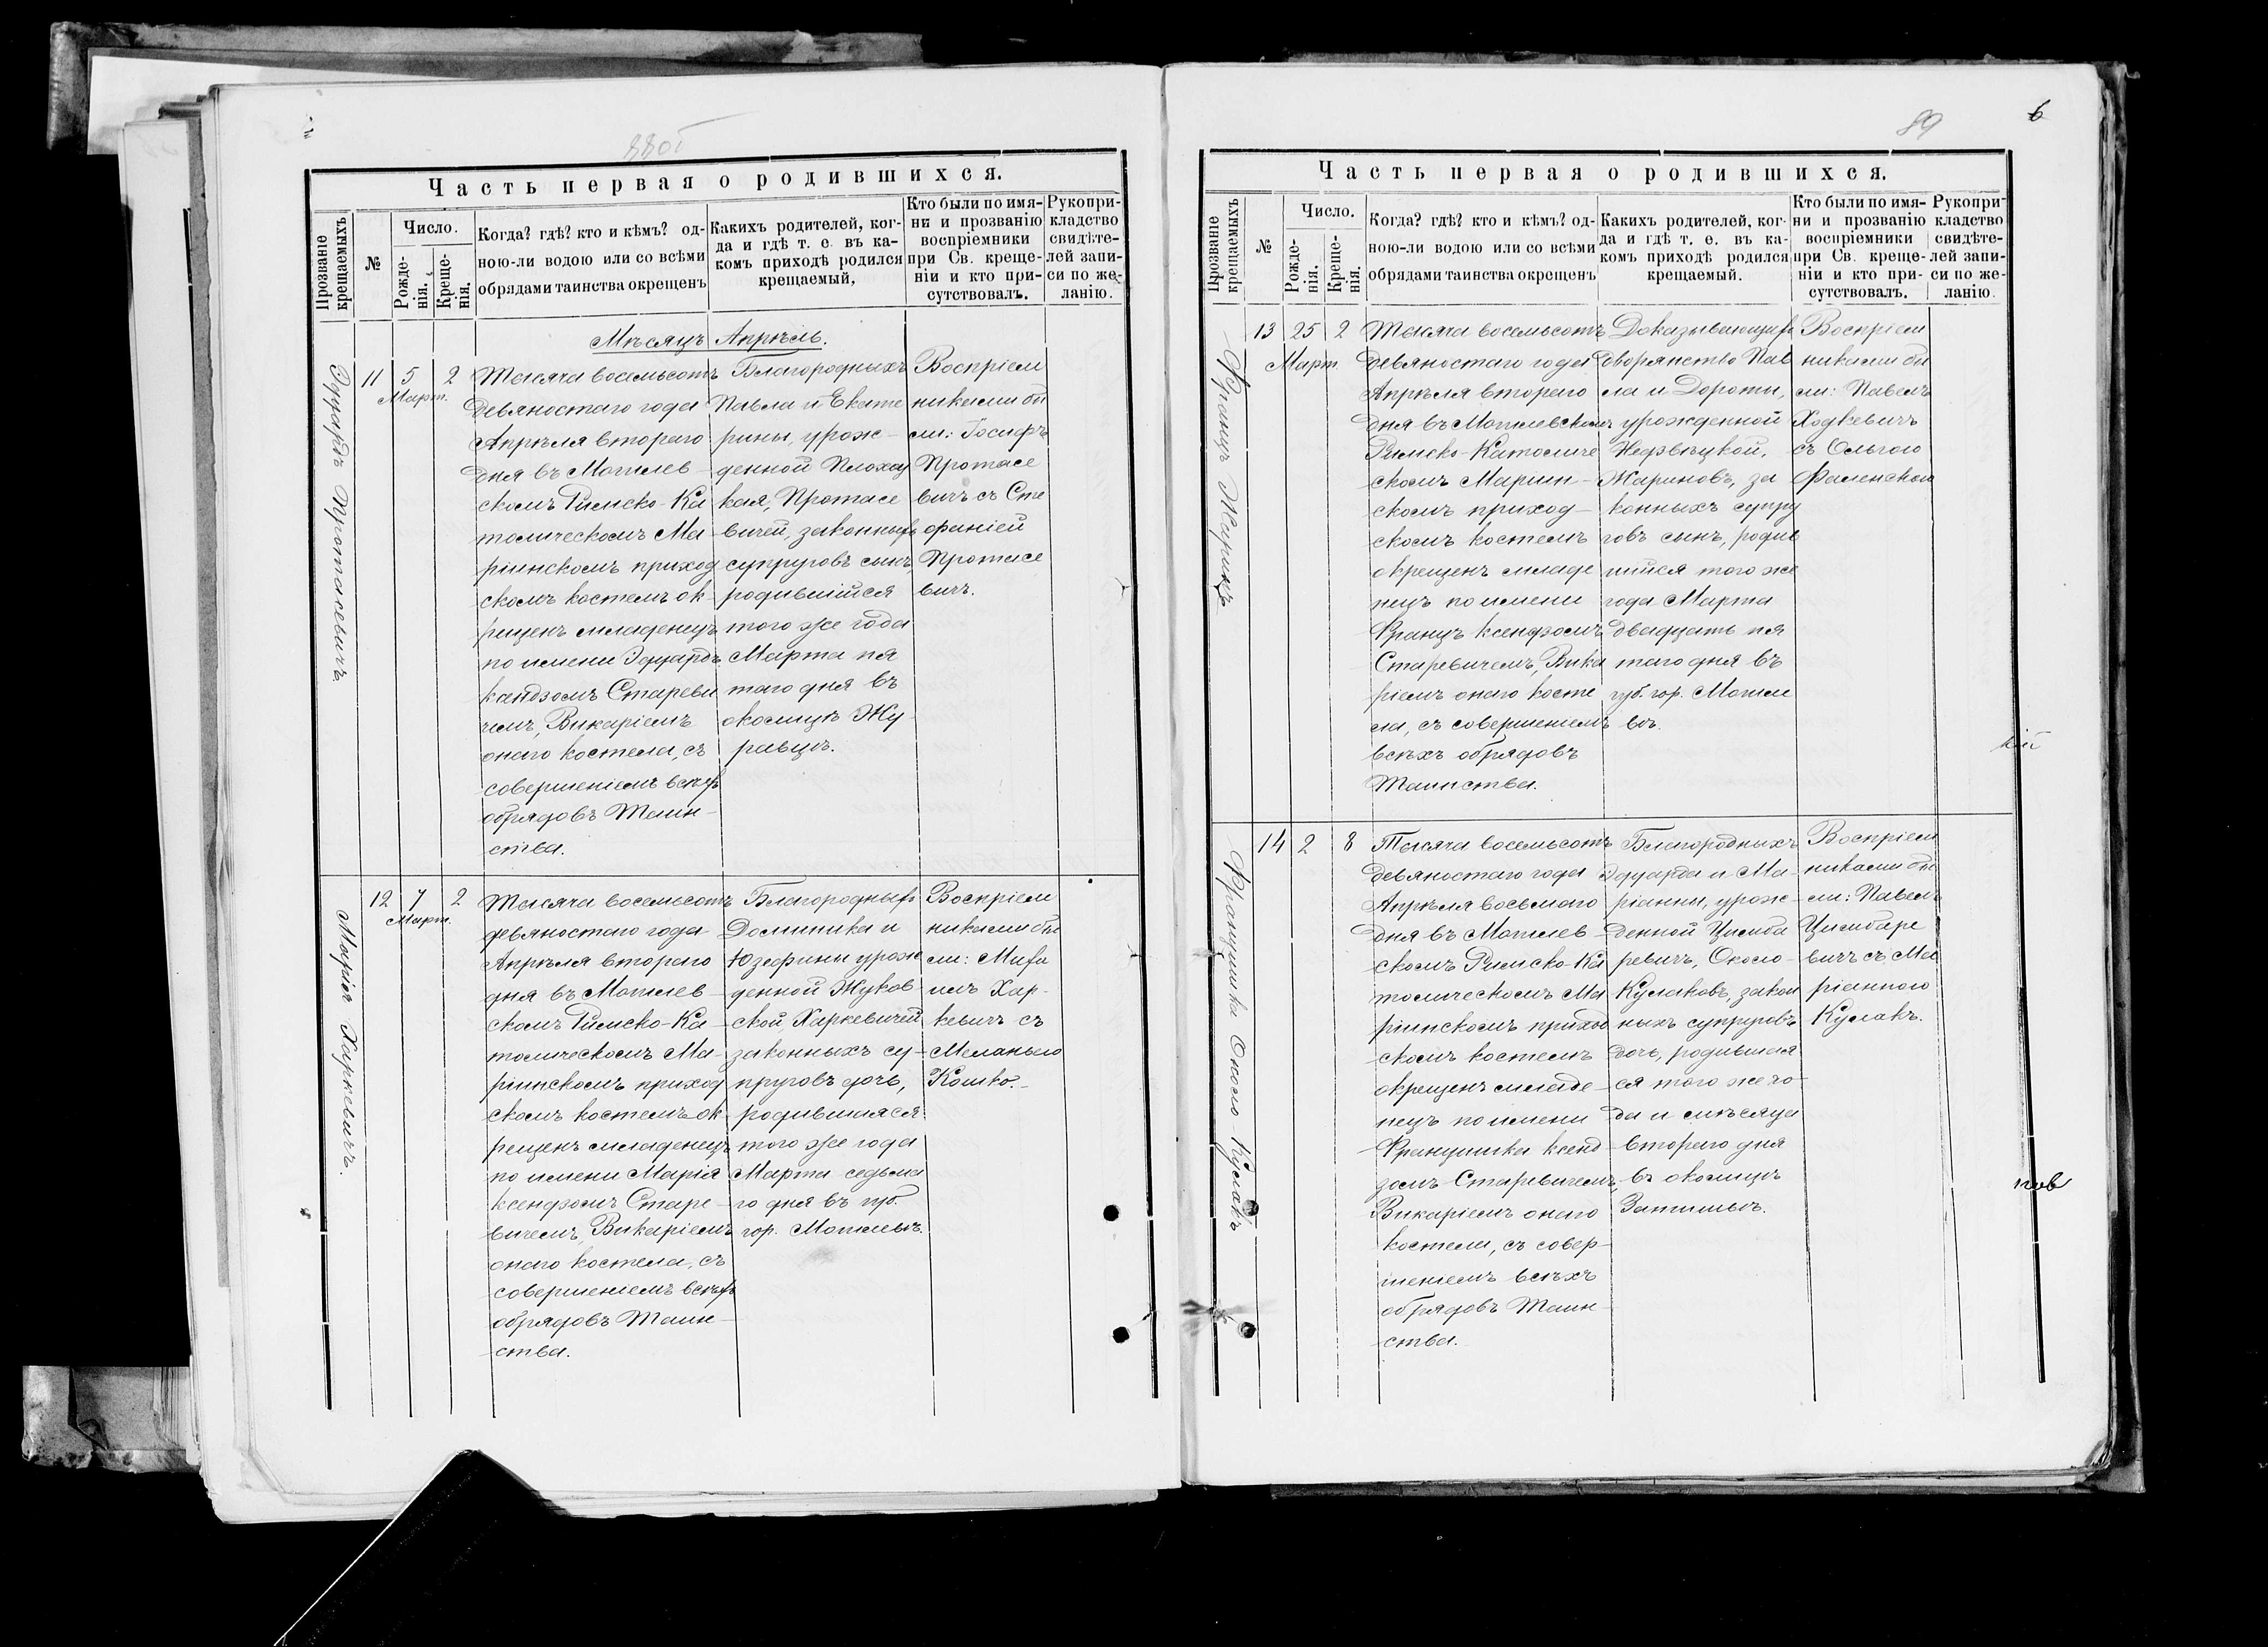 Часть первая о родившихся.
Прозваніе крещаемыхъ
№
Число.
Рожде-
нія.
Креще-
нія.
Когда? гдѣ? кто и кѣмъ? од-
ною-ли водою или со всѣми
обрядами таинства окрещенъ
Какихъ родителей, ког-
да и гдѣ т. е. въ ка-
комъ приходѣ родился
крещаемый,
Кто были по имя-
ни и прозванію
воспріемники
при Св. креще-
ніи и кто при-
сутствовалъ.
Рукопри-
кладство
свидѣте-
лей запи-
си по же-
ланію.
Мѣсяцъ Апрѣль.
Эдуардъ Протасевичъ
11 5 2
Март.
Тысяча восемьсотъ
девяностаго года
Апрѣля втораго
дня въ Могилев-
скомъ Римско-Ка
толическомъ Ма-
ріинскомъ приход
скомъ костелѣ ок-
рещенъ младенецъ
по имени Эдуардъ
ксендзомъ Стареви
чемъ, Викаріемъ
онаго костела, съ
совершеніемъ всѣхъ
обрядовъ Таин-
ства.
Благородныхъ
Павла и Екате
рины, урож-
денной
Протасе
вичей, законныхъ
супруговъ сынъ,
родившійся
того же года
Марта пя
таго дня въ
околицѣ Жу-
равцѣ.
Воспріем
никами бы
ли: Іосифъ
Протасе
вичъ съ Сте
фаніей
Протасе
вичъ.
Марія Харкевичъ.
12 7 2
Март.
Тысяча восемьсотъ
девяностаго года
Апрѣля втораго
дня въ Могилев-
скомъ Римско-Ка-
толическомъ Ма-
ріинскомъ приход
скомъ костелѣ ок-
рещенъ младенецъ
по имени Марія
ксендзомъ Старе-
вичемъ, Викаріемъ
онаго костела, съ
совершеніемъ всѣхъ
обрядовъ Таин-
ства.
Благородныхъ
Доминика и
Юзефины урож
денной Жуков-
ской, Харкевичей
законныхъ су-
пруговъ дочь,
родившаяся
того же года
Марта седьма
го дня въ губ.
гор. Могилевѣ.
Воспріем
никами бы
ли: Миха
илъ Хар-
кевичъ съ
Меланьею
Кошко.
89
6
Часть первая о родившихся.
Прозваніе крещаемыхъ
№
Число.
Рожде-
нія.
Креще-
нія.
Когда? гдѣ? кто и кѣмъ? од-
ною-ли водою или со всѣми
обрядами таинства окрещенъ
Какихъ родителей, ког-
да и гдѣ т. е. въ ка-
комъ приходѣ родился
крещаемый.
Кто были по имя-
ни и прозванію
воспріемники
при Св. креще-
ніи и кто при-
сутствовалъ.
Рукопри-
кладство
свидѣте-
лей запи-
си по же-
ланію.
Францъ Жаринъ
13 25 2
Март.
Тысяча восемьсотъ
девяностаго года
Апрѣля втораго
дня въ Могилевскомъ
Римско-Католиче
скомъ Маріин-
скомъ приход-
скомъ костелѣ
окрещенъ младе
нецъ по имени
Францъ ксендзомъ
Старевичемъ, Вика
ріемъ онаго косте
ла, съ совершеніемъ
всѣхъ обрядовъ
Таинства.
Доказывающихъ
дворянство Пав
ла и Дороты,
урожденной
Жариновъ, за
конныхъ супру
говъ сынъ, родив
шійся того же
года Марта
двадцать пя
таго дня въ
губ. гор. Могиле
вѣ.
Воспріем
никами бы
ли: Павелъ
Ходкевичъ
съ Ольгою
Фаленскою
Францишка Около-Кулакъ
14 2 8
Тысяча восемьсотъ
девяностаго года
Апрѣля восьмаго
дня въ Могилев-
скомъ Римско-Ка
толическомъ Ма
ріинскомъ приход
скомъ костелѣ
окрещенъ младе-
нецъ по имени
Францишка ксенд-
зомъ Старевичемъ,
Викаріемъ онаго
костела, съ совер-
шеніемъ всѣхъ
обрядовъ Таин-
ства.
Благородныхъ
Эдуарда и Ма-
ріанны, урож-
денной Цимба
ревичъ, Около-
Кулаковъ, закон
ныхъ супруговъ
дочь, родившая
ся того же го-
да и мѣсяца
втораго дня
въ околицѣ
Затишьѣ.
Воспріем
никами бы
ли: Павелъ
Цимбаре
вичъ съ Ма
ріанною
Кулакъ.